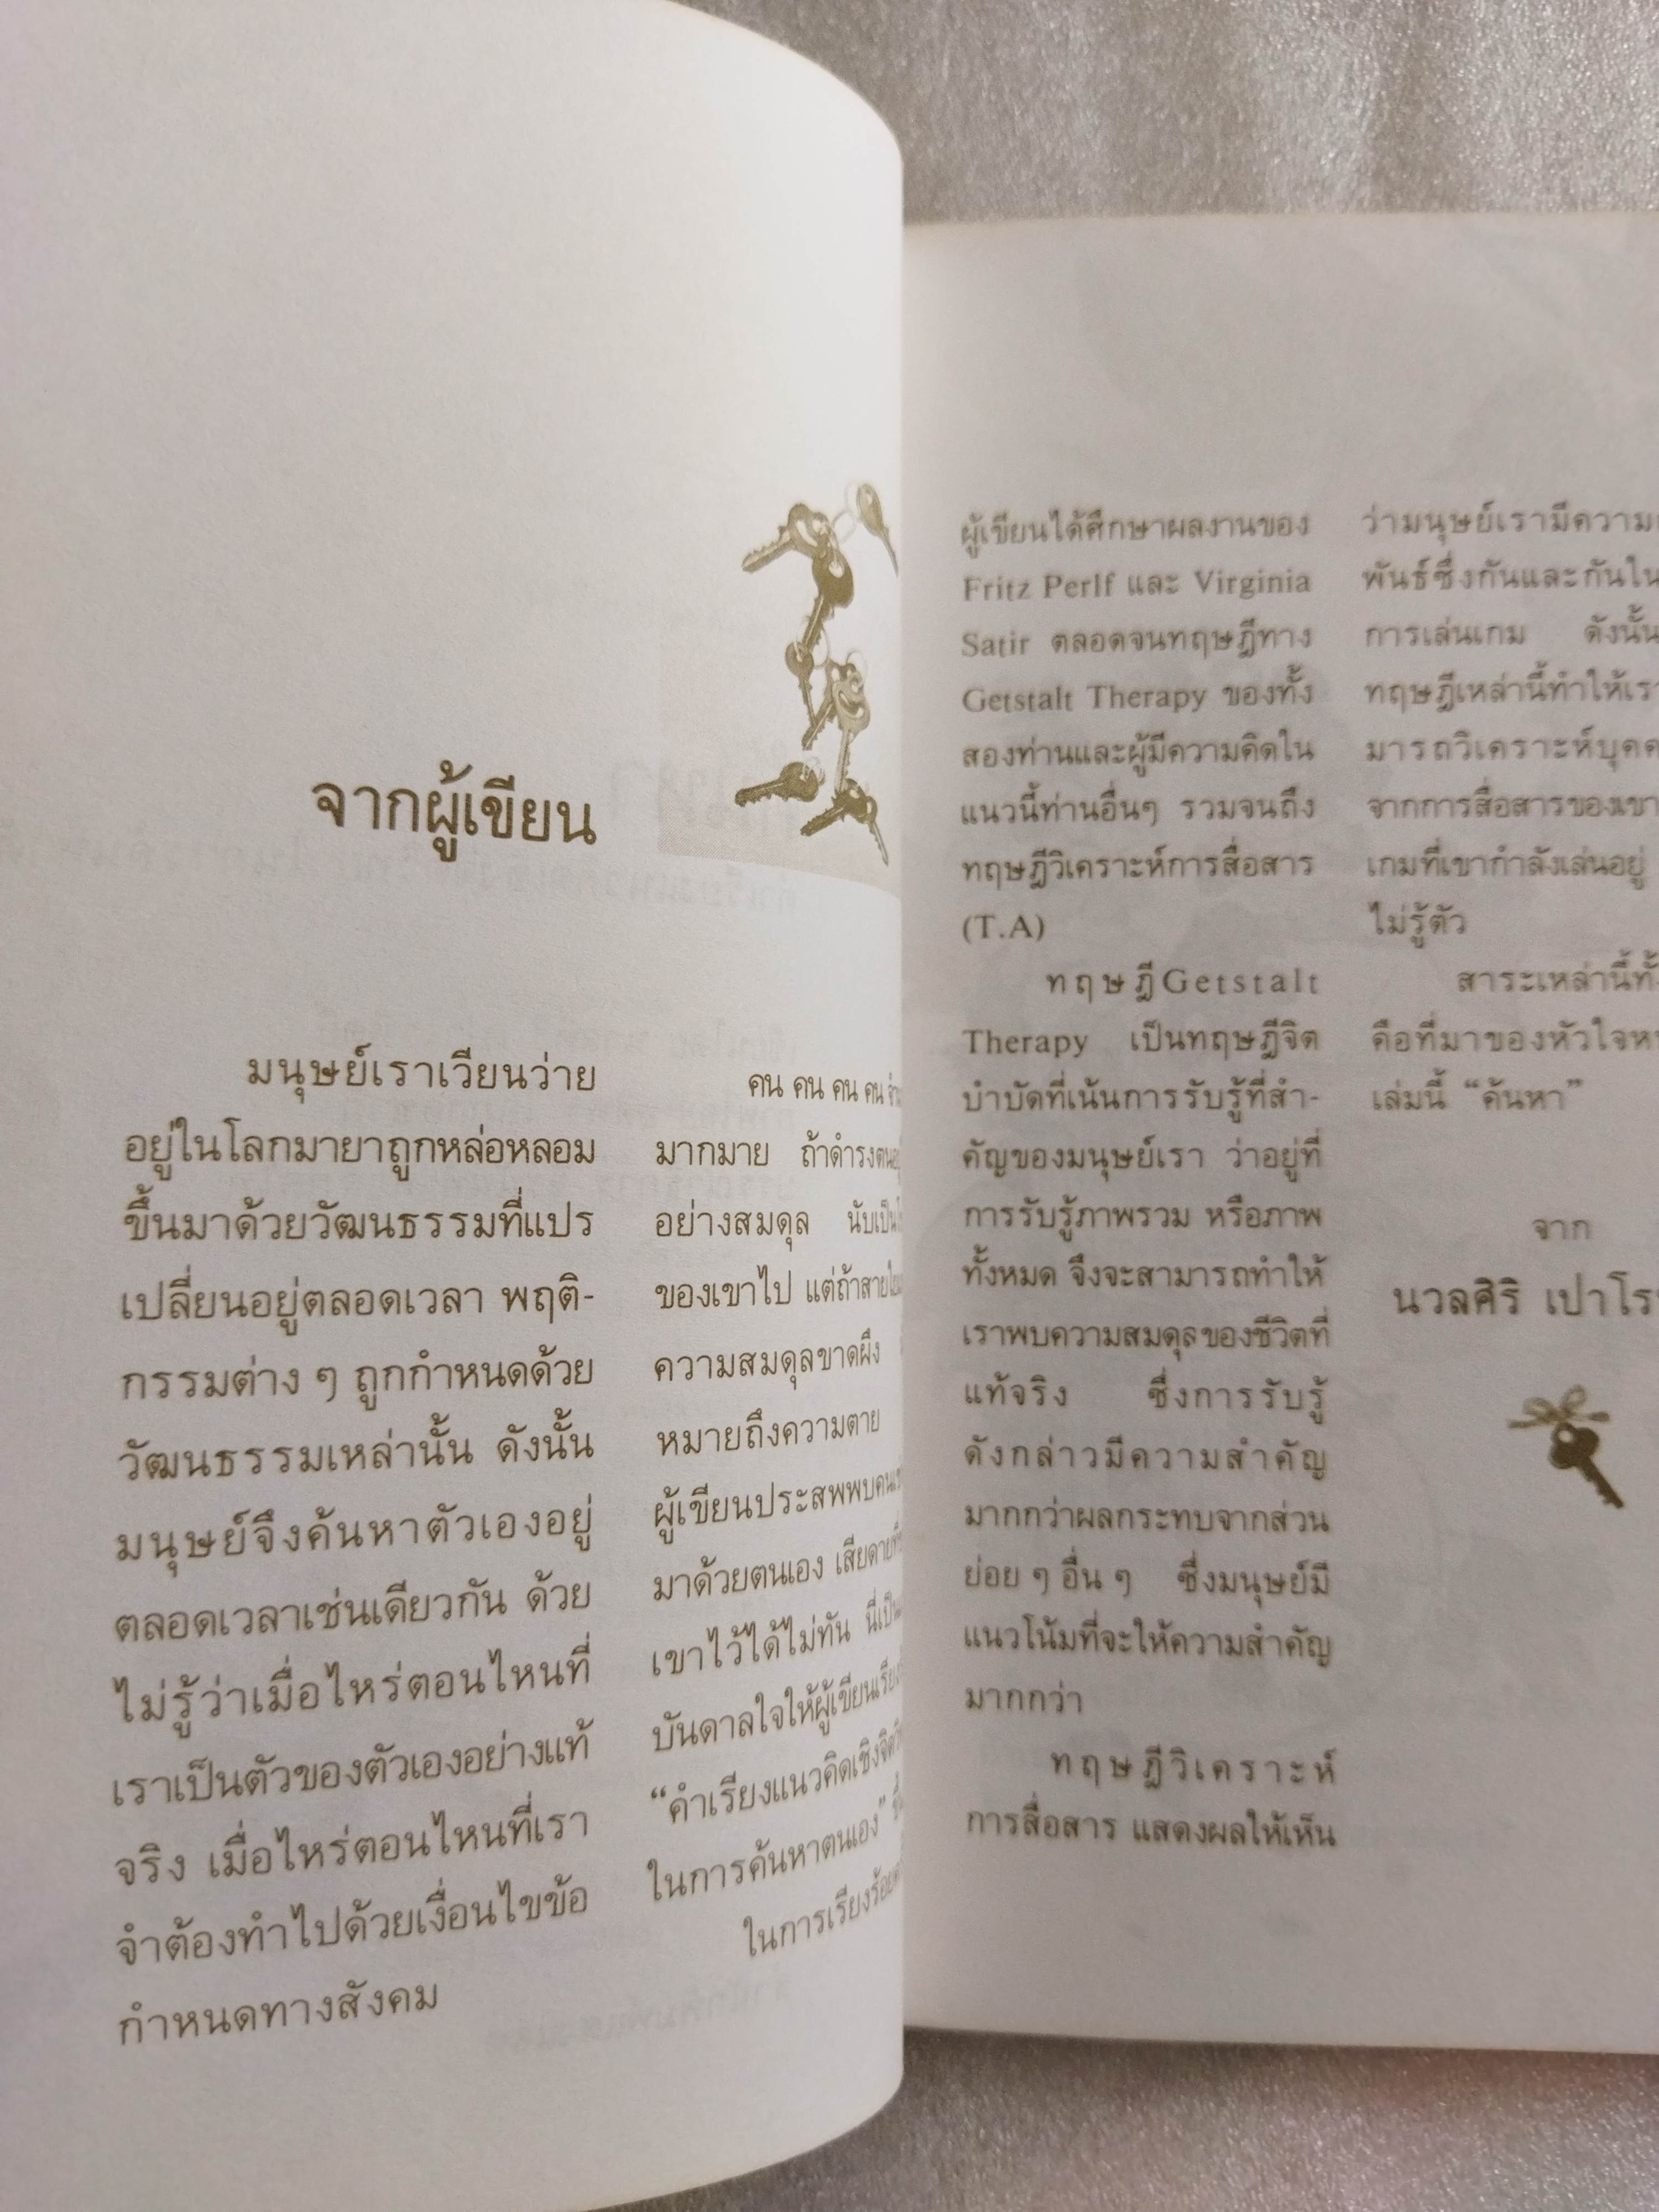 จากผู้เขียน
มนุษย์เราเวียนว่าย
อยู่ในโลกมายาถูกหล่อหลอม
ขึ้นมาด้วยวัฒนธรรมที่แปร
เปลี่ยนอยู่ตลอดเวลา พฤติ-
กรรมต่าง ๆ ถูกกำหนดด้วย
วัฒนธรรมเหล่านั้น ดังนั้น
มนุษย์จึงค้นหาตัวเองอยู่
ตลอดเวลาเช่นเดียวกัน ด้วย
ไม่รู้ว่าเมื่อไหร่ตอนไหนที่
เราเป็นตัวของตัวเองอย่างแท้
จริง เมื่อไหร่ตอนไหนที่เรา
จำต้องทำไปด้วยเงื่อนไขข้อ
กำหนดทางสังคม
คน คน คน คน
มากมาย ถ้าดำรงตน
อย่างสมดุล นับเป็น
ของเขาไป แต่ถ้าสายใย
ความสมดุลขาดผึง
หมายถึงความตาย
ผู้เขียนประสพพบคน
มาด้วยตนเอง เสียดายที่
เขาไว้ได้ไม่ทัน นี่เป็น
บันดาลใจให้ผู้เขียนเรียง
“คำเรียงแนวคิดเชิงจิต
ในการค้นหาตนเอง”
ในการเรียงร้อย
ผู้เขียนได้ศึกษาผลงานของ
Fritz Perlf และ Virginia
Satir ตลอดจนทฤษฎีทาง
Getstalt Therapy ของทั้ง
สองท่านและผู้มีความคิดใน
แนวนี้ท่านอื่นๆ รวมจนถึง
ทฤษฎีวิเคราะห์การสื่อสาร
(T.A)
ทฤษฎีGetstalt
Therapy เป็นทฤษฎีจิต
บำบัดที่เน้นการรับรู้ที่สำ-
คัญของมนุษย์เรา ว่าอยู่ที่
การรับรู้ภาพรวม หรือภาพ
ทั้งหมด จึงจะสามารถทำให้
เราพบความสมดุลของชีวิตที่
แท้จริง ซึ่งการรับรู้
ดังกล่าวมีความสำคัญ
มากกว่าผลกระทบจากส่วน
ย่อย ๆ อื่น ๆ ซึ่งมนุษย์มี
แนวโน้มที่จะให้ความสำคัญ
มากกว่า
ทฤษฎีวิเคราะห์
การสื่อสาร แสดงผลให้เห็น
ว่ามนุษย์เรามีความ
พันธ์ซึ่งกันและกันใน
การเล่นเกม ดังนั้น
ทฤษฎีเหล่านี้ทำให้เรา
มารถวิเคราะห์บุคค
จากการสื่อสารของเขา
เกมที่เขากำลังเล่นอยู่
ไม่รู้ตัว
สาระเหล่านี้ทั้ง
คือที่มาของหัวใจ
เล่มนี้ “ค้นหา”
จาก
นวลศิริ เปาโร